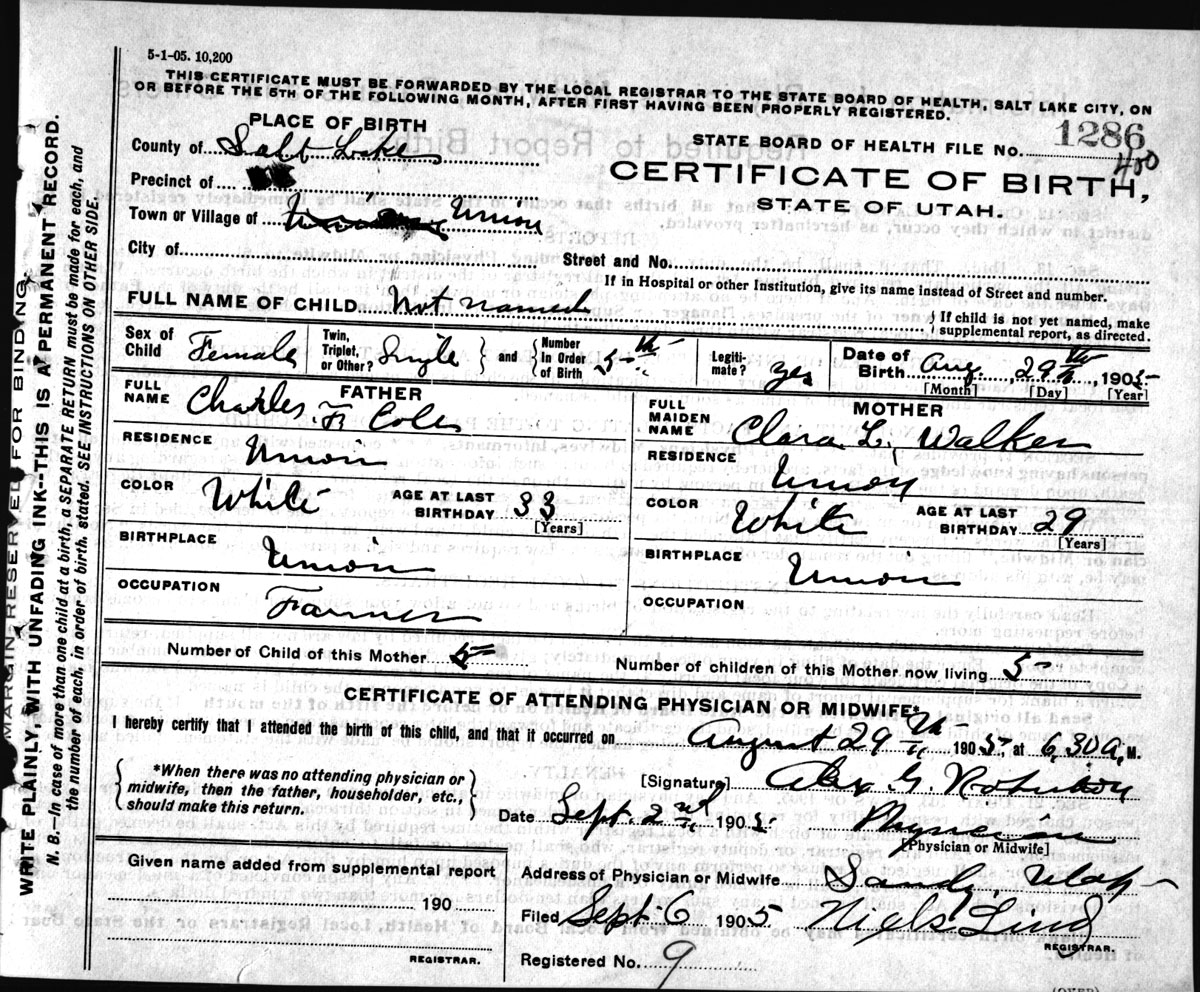 5-1-05. 10,200
THIS CERTIFICATE MUST BE FORWARDED BY THE LOCAL REGISTRAR TO THE STATE BOARD OF HEALTH, SALT LAKE CITY, ON
OR BEFORE THE 5TH OF THE FOLLOWING MONTH, AFTER FIRST HAVING BEEN PROPERLY REGISTERED.
PLACE OF BIRTH
County of Salt Lake
Precinct of
Town or Village of Union
City of
STATE BOARD OF HEALTH FILE NO. 1286
400
CERTIFICATE OF BIRTH,
STATE OF UTAH.
Street and No.
If in Hospital or other Institution, give its name instead of Street and number.
FULL NAME OF CHILD Not named
If child is not yet named, make
supplemental report, as directed.
Sex of Child Female
Twin, Triplet, or Other? Single
and Number In Order of Birth 5th
Legiti-mate? yes
Date of Birth Aug. 29th, 1905
[Month] [Day] [Year]
FATHER
FULL NAME Charles F. Cole
RESIDENCE Union
COLOR White AGE AT LAST BIRTHDAY 33
[Years]
BIRTHPLACE Union
OCCUPATION Farmer
MOTHER
FULL MAIDEN NAME Clara L. Walker
RESIDENCE Union
COLOR White AGE AT LAST BIRTHDAY 29
[Years]
BIRTHPLACE Union
OCCUPATION
Number of Child of this Mother 5
Number of children of this Mother now living 5
CERTIFICATE OF ATTENDING PHYSICIAN OR MIDWIFE*
I hereby certify that I attended the birth of this child, and that it occurred on August 29th 1905, at 6,30 A, M.
*When there was no attending physician or
midwife, then the father, householder, etc.,
should make this return.
[Signature] Alex. G. Robinson
Date Sept. 2nd 1905. Physician
[Physician or Midwife]
Given name added from supplemental report
190
REGISTRAR.
Address of Physician or Midwife Sandy, Utah
Filed Sept 6 1905 Niels Lind
REGISTRAR.
Registered No. 9
(OVER)
MARGIN RESERVED FOR BINDING.
WRITE PLAINLY, WITH UNFADING INK--THIS IS A PERMANENT RECORD.
N. B.--In case of more than one child at a birth, a SEPARATE RETURN must be made for each, and
the number of each, in order of birth, stated. SEE INSTRUCTIONS ON OTHER SIDE.